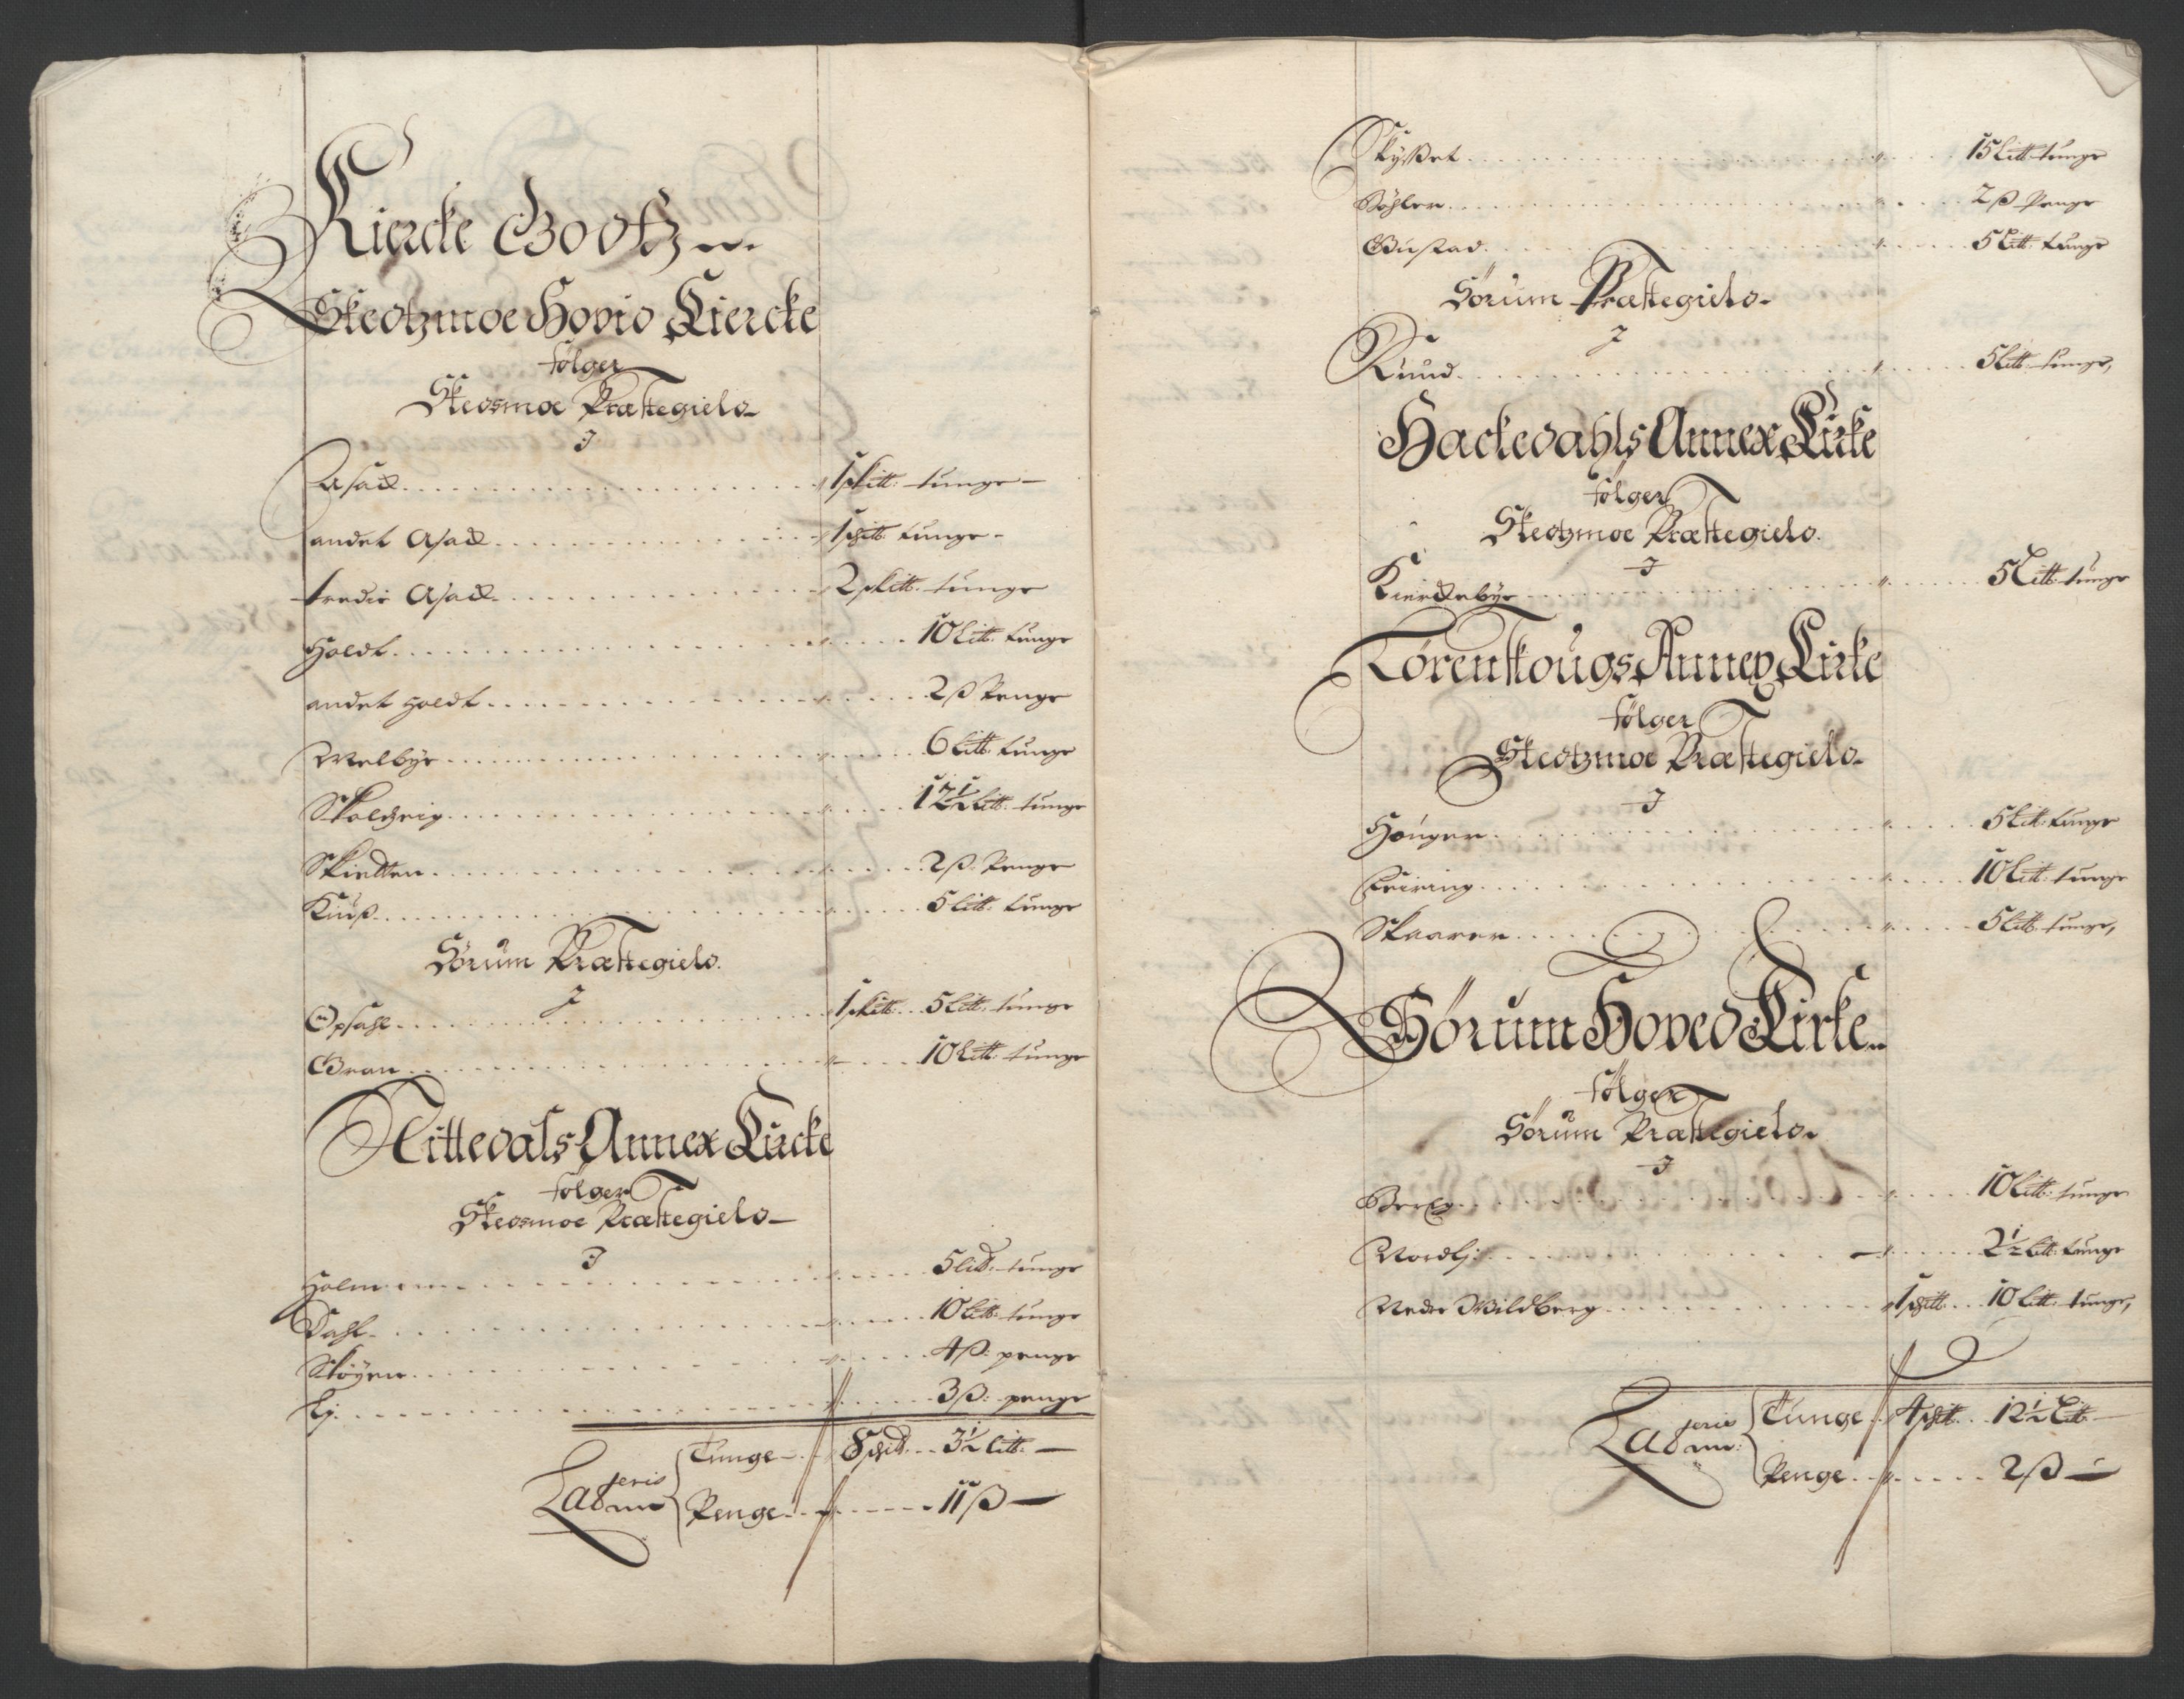 Kiercke Godtz
Skedtzmoe Hovid Kiercke
følger
Skedsmoe Præstegield
I
Asack 1 skitt: tunge
andet Asack 1 skitt: tunge
tredie Asack 2 skitt: tunge
Holdt 10 Litt: tunge
andet Holdt 2 ß Penge
Melbye 6 Litt: tunge
Skoldzrig 12½ Litt: tunge
Skietten 2 ß: Penge
Kiuß 5 Litt: tunge
Sørum Præstegield
I
Opsahl 1 skitt: 5 Litt: tunge
Gran 10 Litt: tunge
Nittedals Annex Kircke
følger
Skedsmoe Præstegield
I
Holm 5 Litt: tunge
Dahl 10 Litt: tunge
Skøyen 4 ß: penge
Ej 3 ß: penge
Laderis
Tunge 8 skitt: 3½ Litt:
Penge 11 ß
Skysset 15 Litt: tunge
Bøhler 2 ß Penge
Bustad 5 Litt: tunge
Sørum Præstegield
I
Ruud 5 Litt: tunge,
Hackedahls Annex Kirke
følger
Skedtzmoe Præstegield.
I
Kierckebye 5 Litt: tunge
Lørenskougs Annex Kirke
følger
Skedtzmoe Præstegield
I
Hounger 5 Litt: tunge
Feiring 10 Litt: tunge
Skaarer 5 Litt: tunge,
Sørum Hoved Kirke
følger
Sørum Præstegield
I
Berg 10 Litt: tunge
Nordlj: 2½ Litt: tunge
Nedre Wildberg 1 skitt: 10 Litt: tunge,
Laderis
Tunge 4 skitt: 12½ Litt:
Penge 2 ß